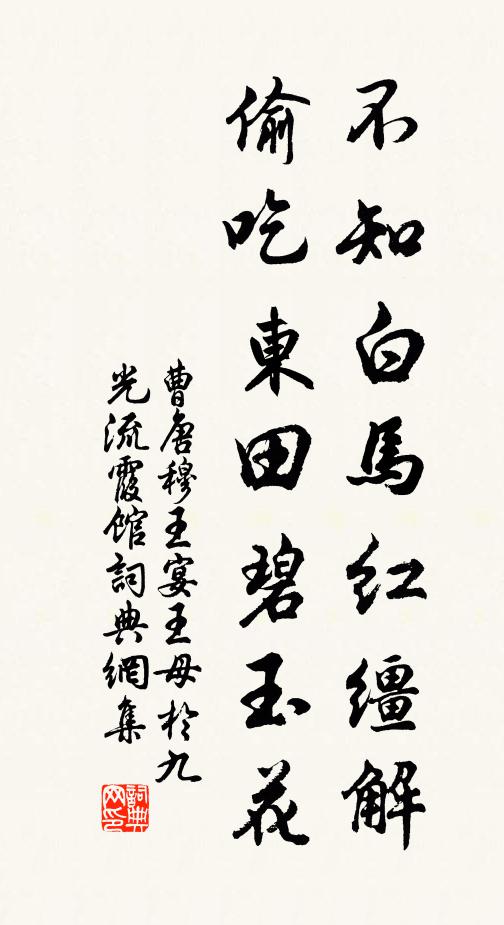 不知白馬紅繮解
偷吃東田碧玉花
曹唐穆王宴王母於九
光流霞館詞典網集
詞典网印